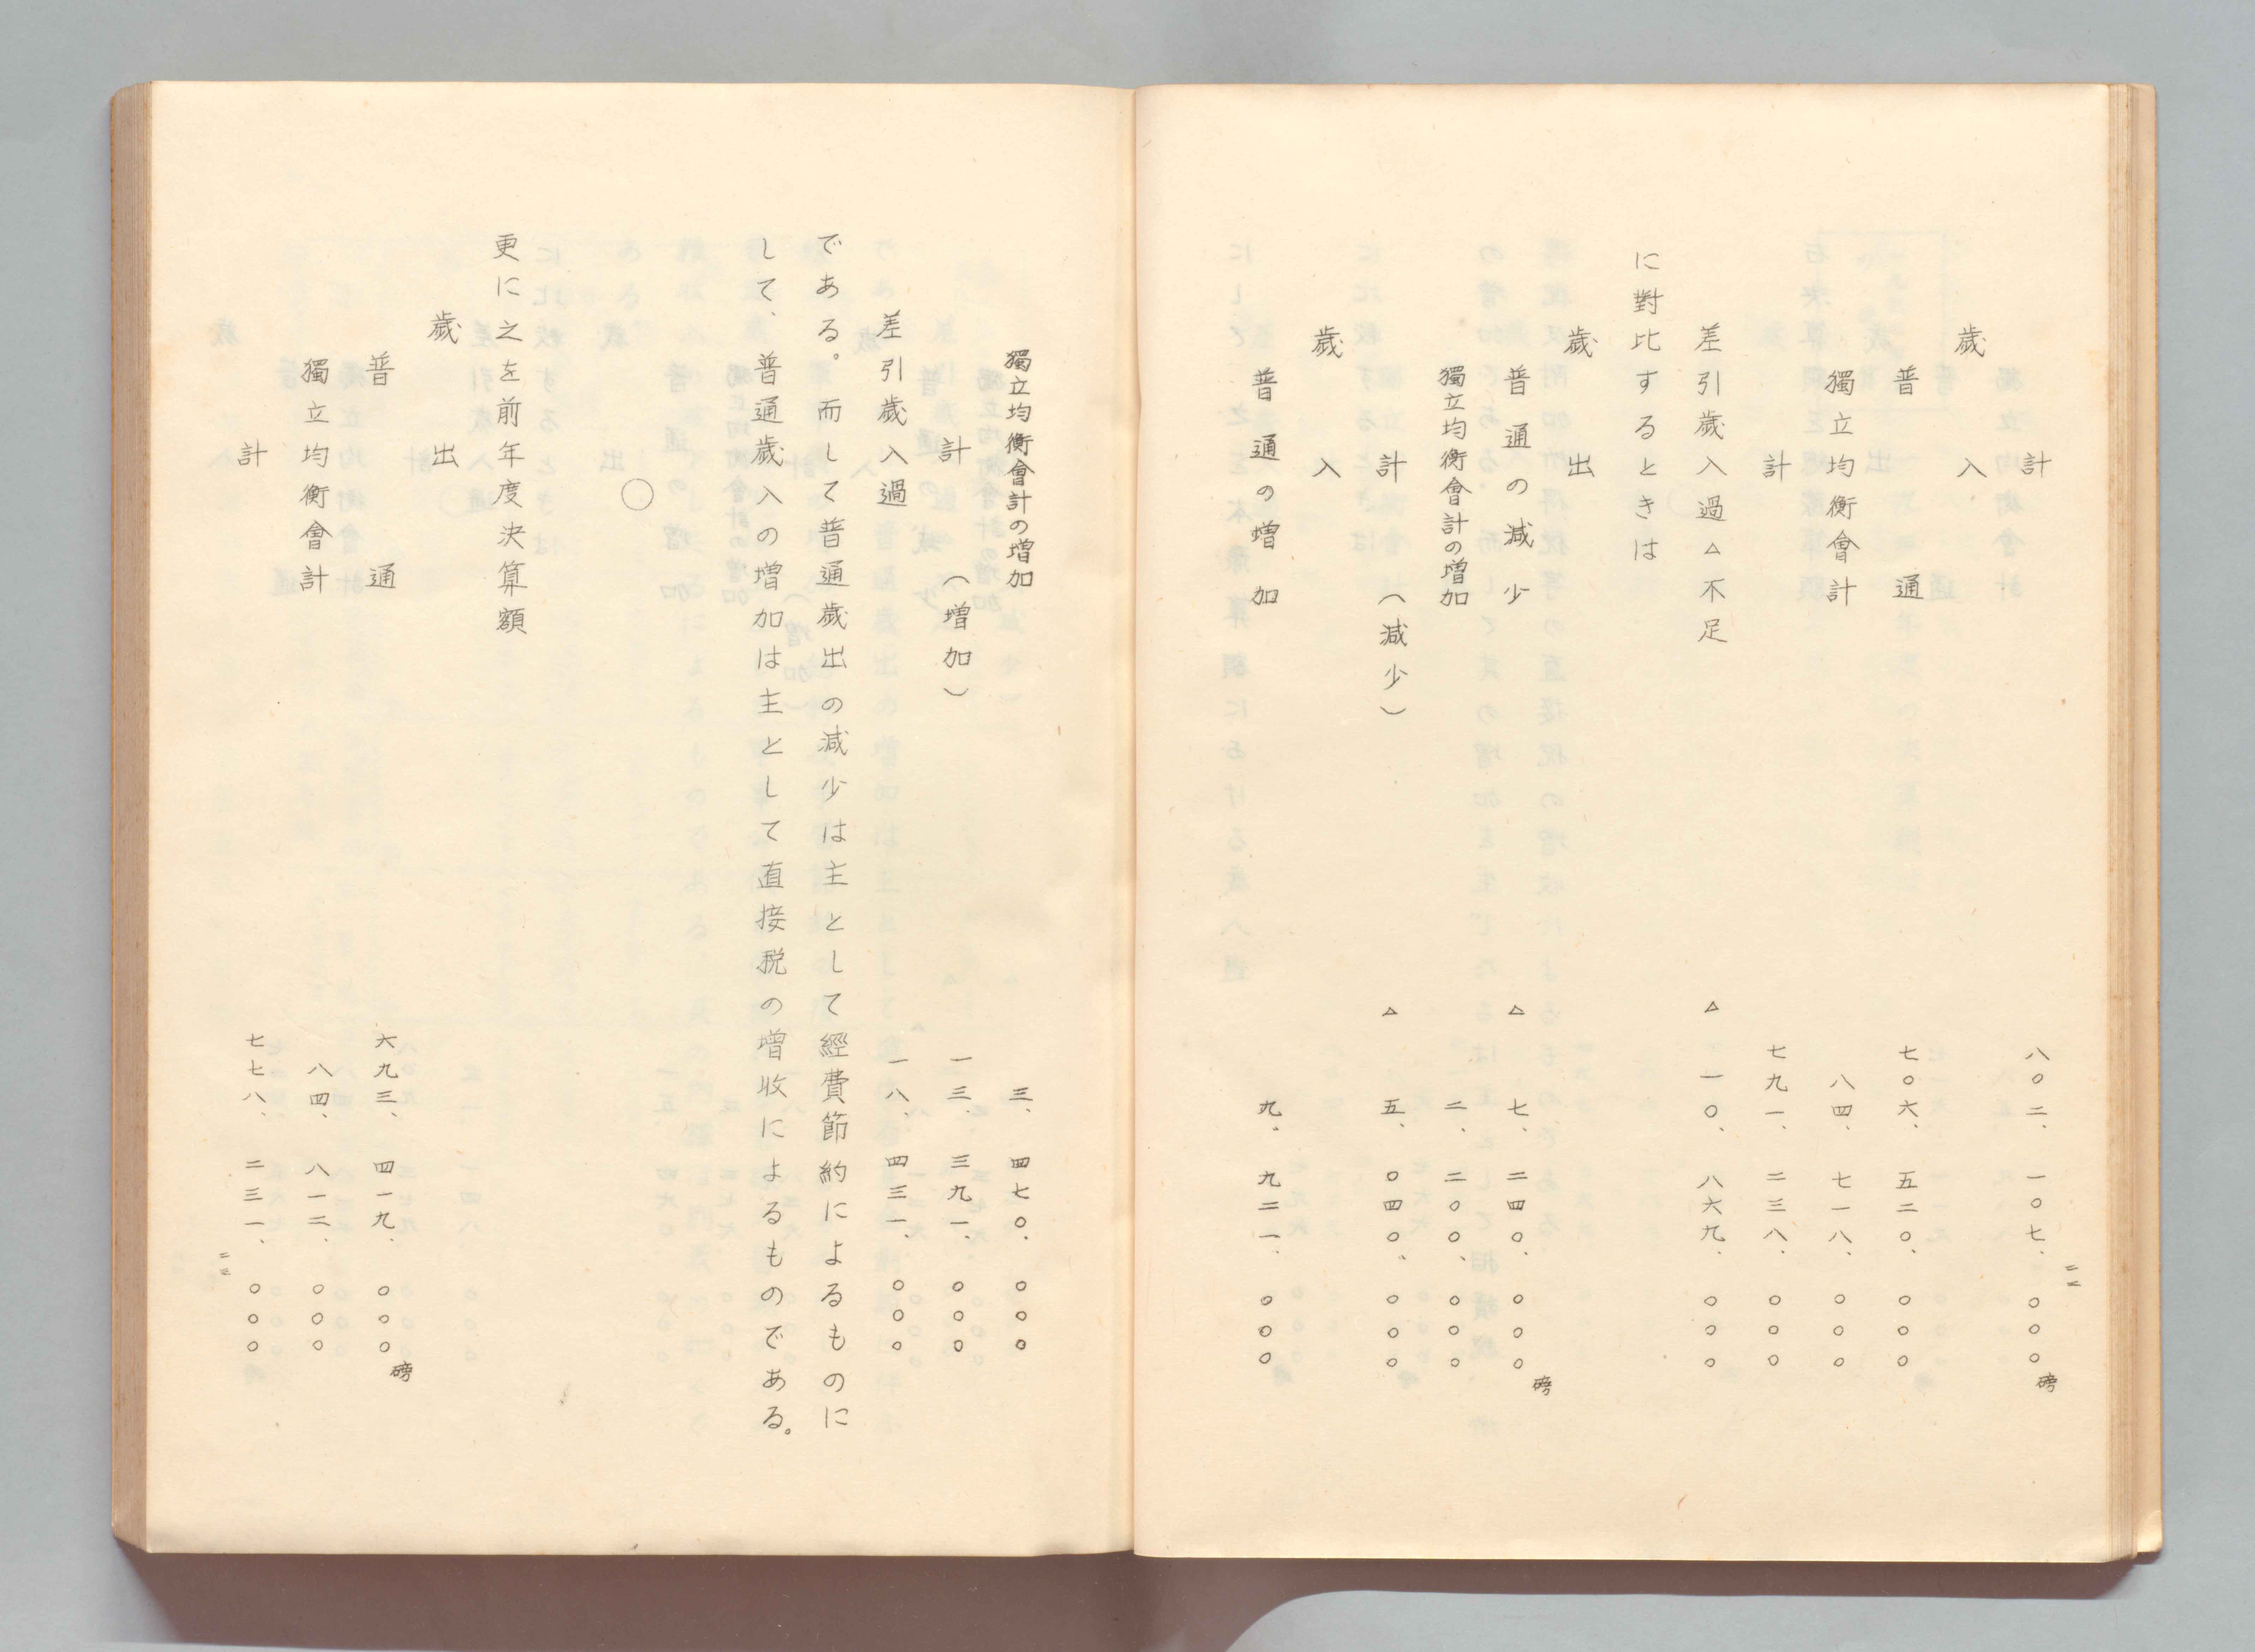 計 八〇二、一〇七、〇〇〇磅
歲入
普通 七〇六、五二〇、〇〇〇
獨立均衡會計 八四、七一八、〇〇〇
計 七九一、二三八、〇〇〇
差引歲入過△不足 △一〇、八六九、〇〇〇
に對比するときは
歲出
普通の減少 △七、二四〇、〇〇〇磅
獨立均衡會計の增加 二、二〇〇、〇〇〇
計(減少) △五、〇四〇、〇〇〇
歲入
普通の增加 九、九二一、〇〇〇
二二
獨立均衡會計の增加 三、四七〇、〇〇〇
計(增加) 一三、三九一、〇〇〇
差引歲入過 一八、四三一、〇〇〇
である。而して普通歲出の減少は主として經費節約によるものに
して、普通歲入の增加は主として直接税の增收によるものである。
〇
更に之を前年度決算額
歲出
普通 六九三、四一九、〇〇〇磅
獨立均衡會計 八四、八一二、〇〇〇
計 七七八、二三一、〇〇〇
二三